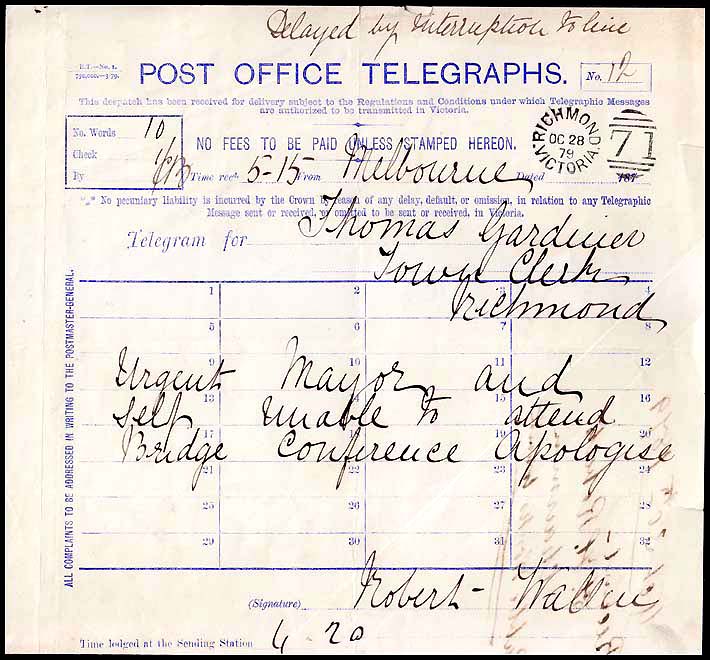 Delayed by Interruption to line
B.T.—No. 1.
POST OFFICE TELEGRAPHS.
No. 12
This despatch has been received for delivery subject to the Regulations and Conditions under which Telegraphic Messages
are authorized to be transmitted in Victoria.
RICHMOND
OC 28
79
VICTORIA
71
No. Words 10
Check
By
NO FEES TO BE PAID UNLESS STAMPED HEREON.
Time recd. 5-15 From Melbourne Dated 187
"*" No pecuniary liability is incurred by the Crown by reason of any delay, default, or omission, in relation to any Telegraphic
Message sent or received, or omitted to be sent or received, in Victoria.
Telegram for Thomas Gardiner
Town Clerk
Richmond
1 2 3 4
5 6 7 8
9 10 11 12
Urgent Mayor and
13 14 15 16
Self Unable to attend
17 18 19 20
Bridge Conference Apologise
21 22 23 24
25 26 27 28
29 30 31 32
(Signature) Robert
Time lodged at the Sending Station 4 20
ALL COMPLAINTS TO BE ADDRESSED IN WRITING TO THE POSTMASTER-GENERAL.